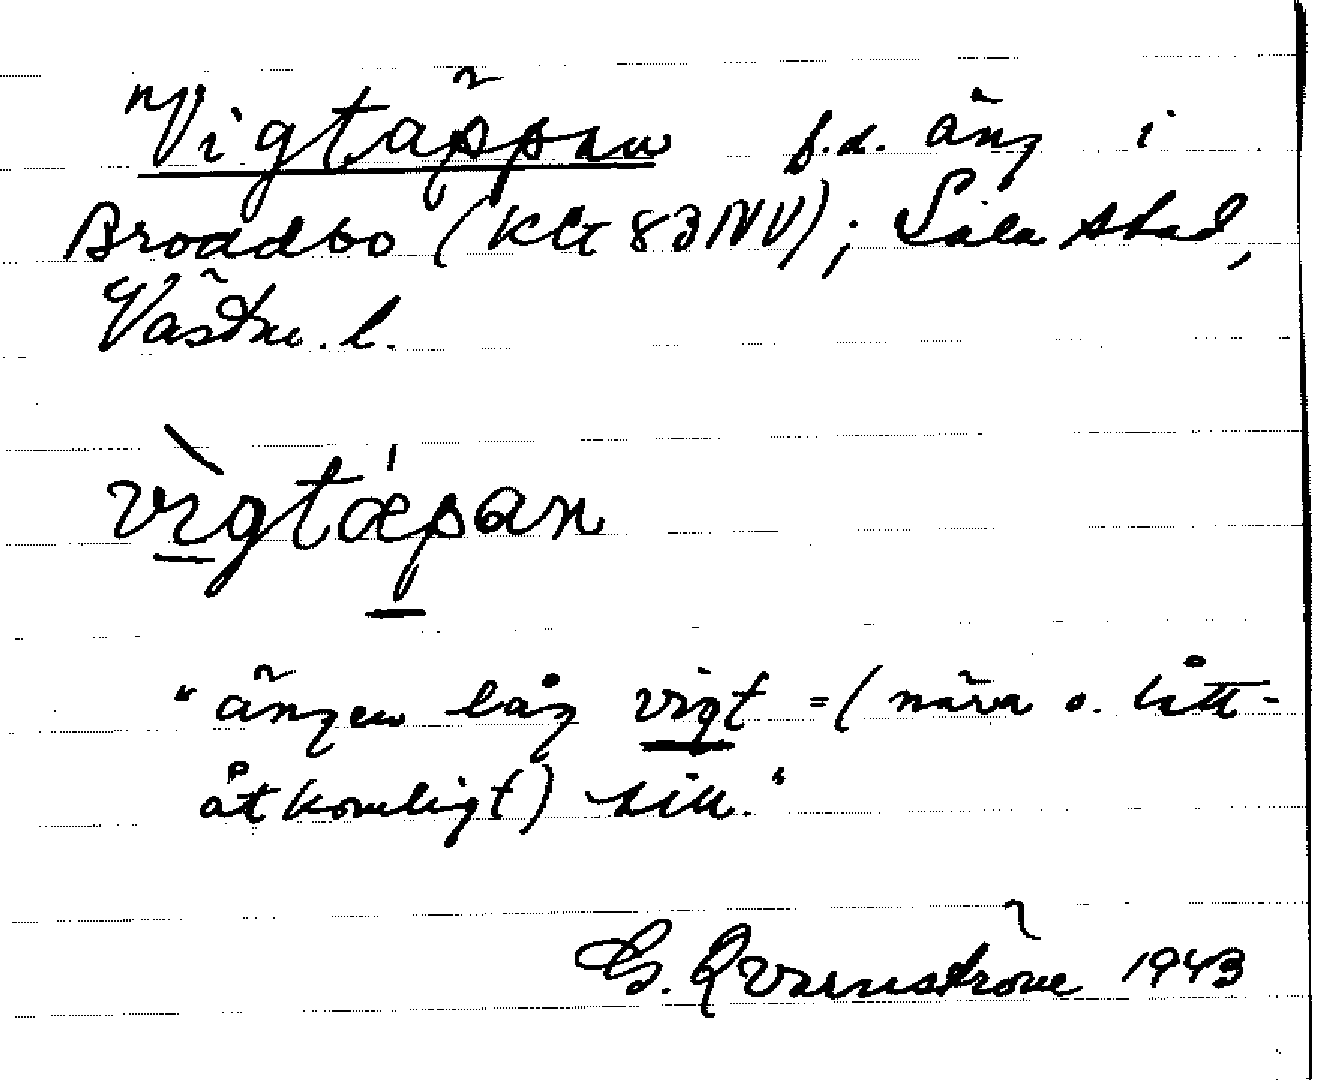 "Vigtäppan f.d. äng i
Broddbo (Kbl 83NV); Sala stad,
Västm. l.
vìgtǽpan
"ängen låg vigt =(nära o. lätt-
åtkomligt) till."
G. Qvarnström 1943